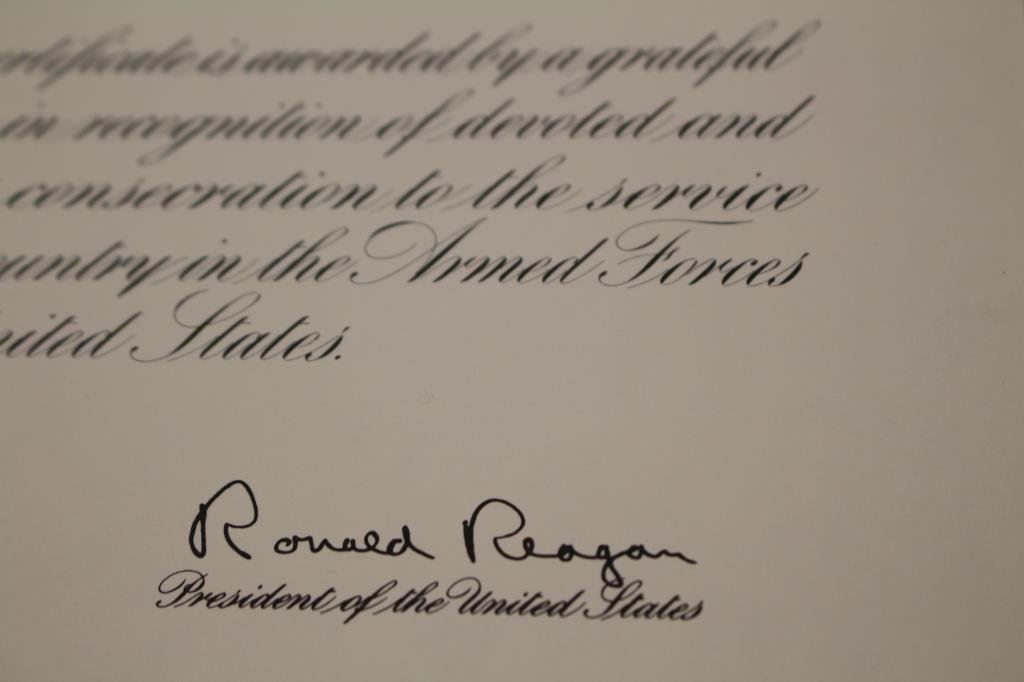 certificate is awarded by a grateful
in recognition of devoted and
consecration to the service
untry in the Armed Forces
nited States.
Ronald Reagan
President of the United States